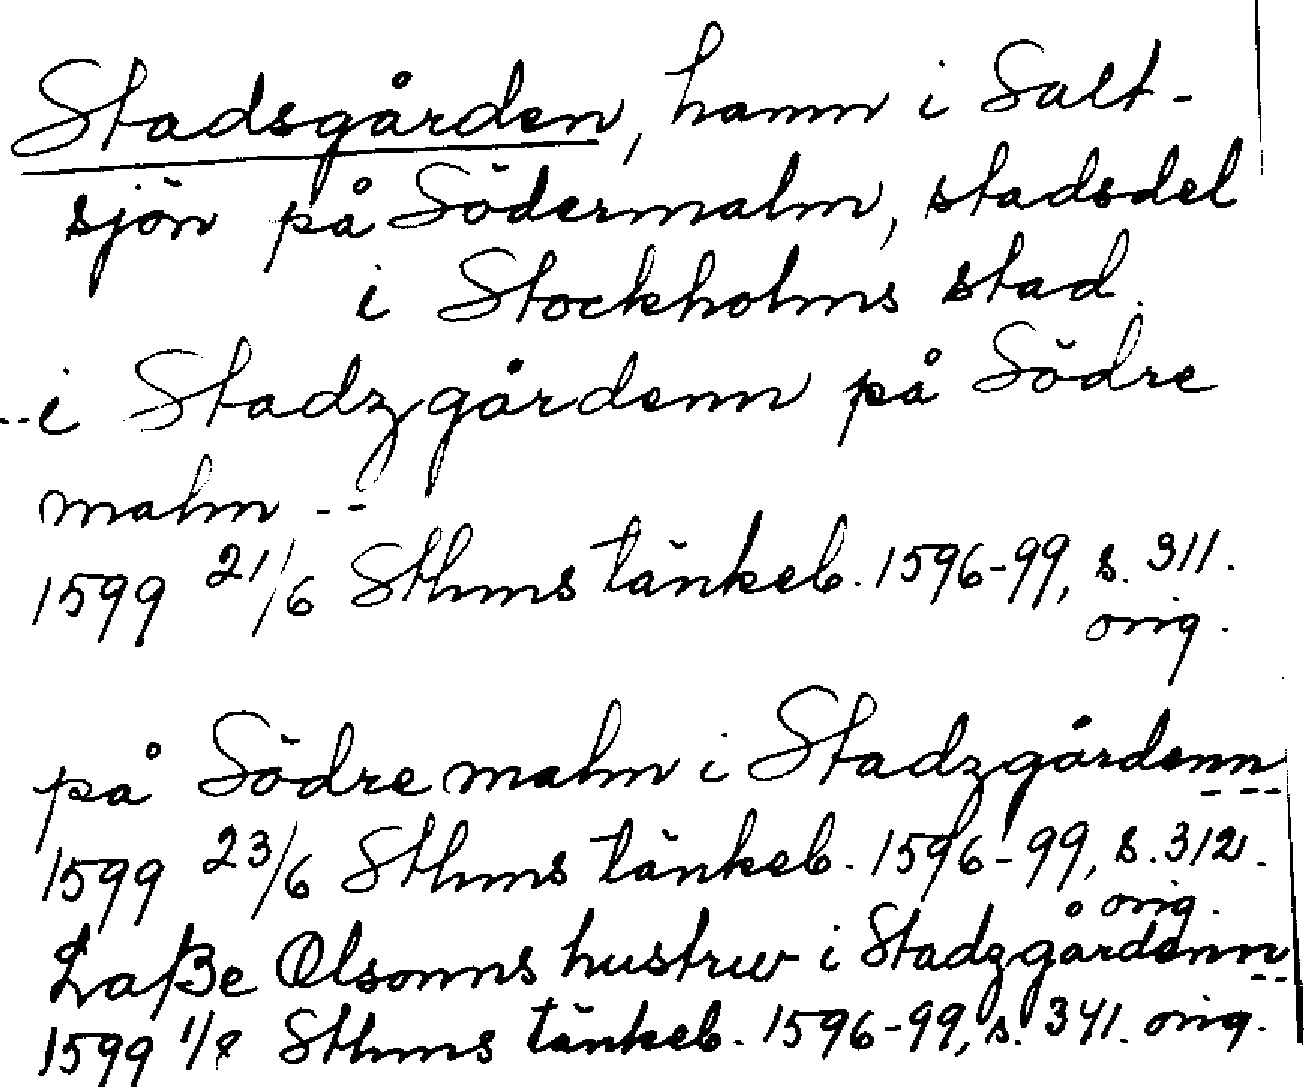 Stadsgården, hamn i Salt-
sjön på Södermalm, stadsdel
i Stockholms stad.
--i Stadzgårdenn på Södre
malm --
1599 21/6 Sthms tänkeb. 1596-99, s. 311.
orig.
på Södre malm i Stadzgårdenn
---
1599 23/6 Sthms tänkeb. 1596-99, s. 312.
orig.
Laße Olsonns hustrw i Stadzgårdenn
--
1599 Sthms tänkeb. 1596-99, s. 341. orig.